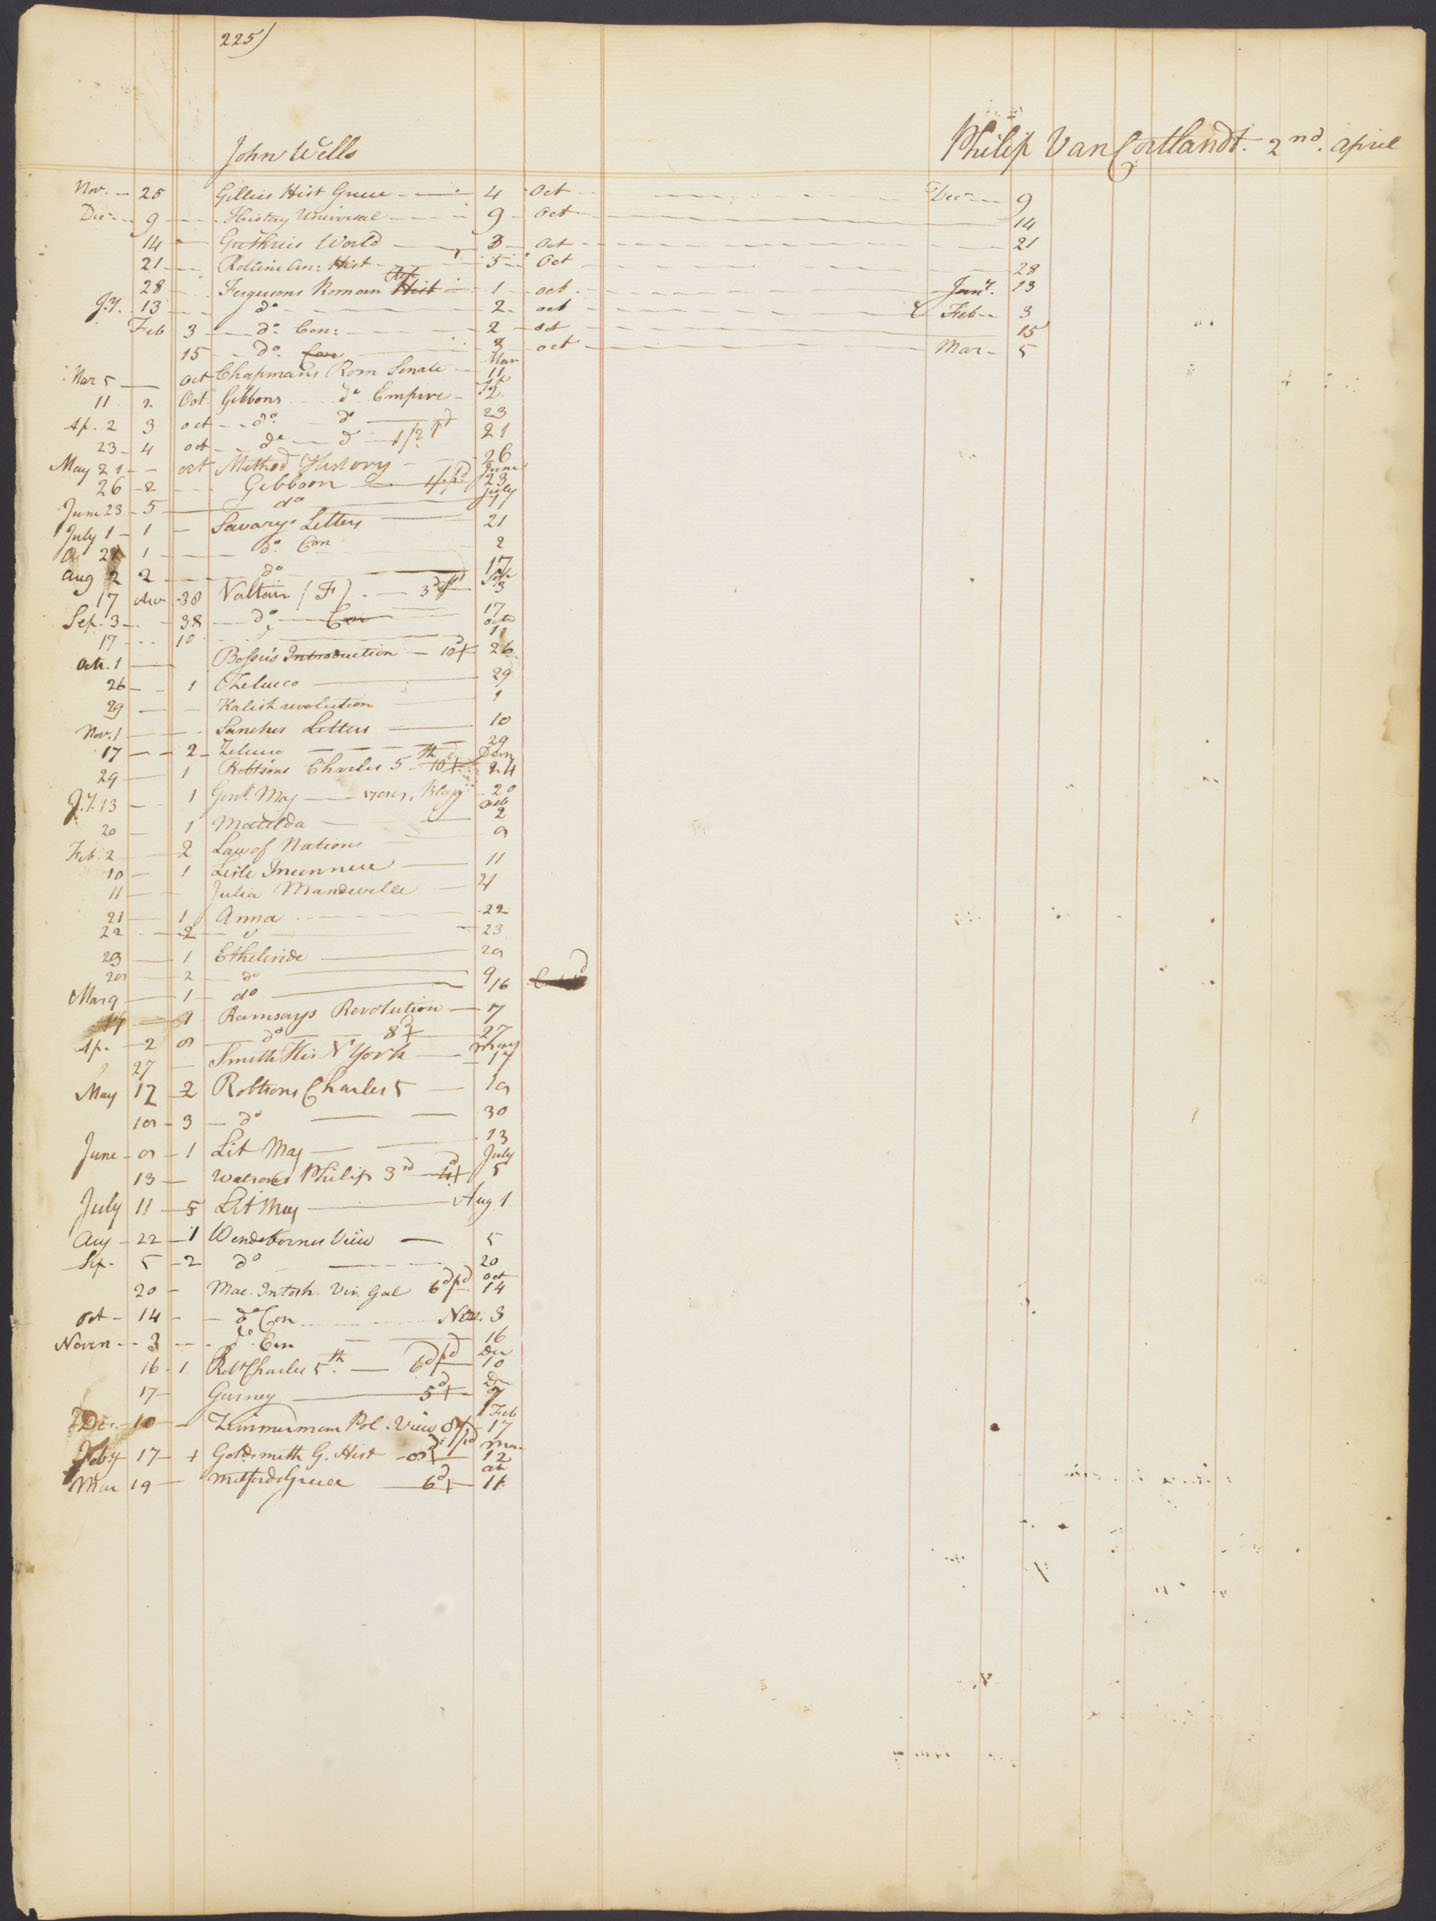 225)
John Wells
Philip Van Cortlandt. 2nd. april
Nov. 25 Gillies Hist Greece 4 Oct Decr 9
Decr 9 History Universal 9 Oct 14
14 Guthries World 3 Oct 21
21 Rollins An: Hist 5 Oct 28
28 Fergusons Roman Hist Rep 1 oct Jany. 13
Jy. 13 do 2 oct Feb 3
Feb 3 do Con: 2 oct 15
15 do Con 3 oct Mar 5
Mar 5 Oct Chapmans Rom Senate Mar 11
11 2 Oct Gibbons do Empire 2
Ap. 2 3 oct do do 23
23 4 oct do do 1/2 Pd 21
May 21 oct Method History 26
26 2 Gibbon June 23
June 23 5 do July
July 1 1 Savarys Letters 21
21 1 do Con 2
Aug 2 2 do 17
17 38 Voltair (F) 3d pd Sep 3
Sep. 3 38 do Con 17
17 10 Octo
Octr. 1 Bossu's Introduction 26
26 1 Zelucco 29
29 Kalish revolution 1
Nov. 1 Sanchos Letters 10
17 2 Zelucco 29
29 1 Robtsons Charles 5th 24
J.y. 13 1 Genl. Mag 20
20 1 Matilda 2
Feb 2 2 Law of Nations 9
10 1 11
11 Julia Mandeville 21
21 1 Anna 22
22 2 23
23 1 Ethelinde 29
29 2 do 9
Mar 9 1 do 16
17 1 Ramsays Revolution 7
Ap. 2 do 8d 27
27 Smith His N York May 17
May 17 2 Robtsons Charles 5 19
19 3 do 30
June 9 1 Lit Mag 13
13 Watsons Philip 3rd July 5
July 11 5 Lit Mag Aug 1
Aug 22 1 Wendebornes View 5
Sep. 5 2 do 20
20 Mac. Intosh. Vin. Gal 6d pd Oct 14
Oct 14 do Con Nov. 3
Novem 3 do Con 16
16 1 Robt Charles 5th 6d pd Dec 10
17 Gurney 5d Dec 7
Dec. 10 Zimmerman Pol. View Feb 17
Feby 17 Goldsmith G. Hist Mar 12
Mar 19 Mitford Greece 6d 11